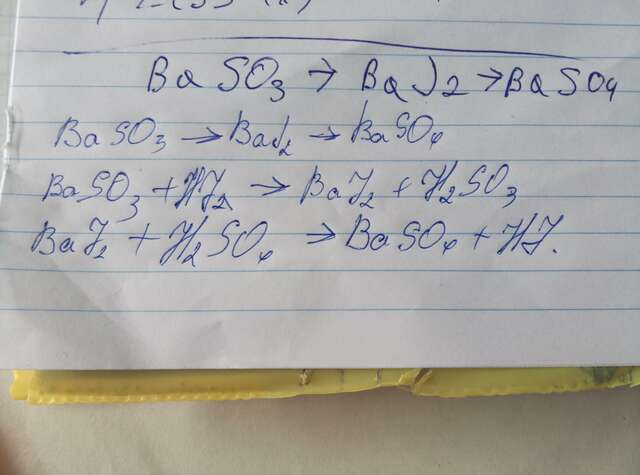 BaSO3 → BaJ2 → BaSO4
BaSO3 → BaJ2 → BaSO4
BaSO3 + HJ2 → BaJ2 + H2SO3
BaJ2 + H2SO4 → BaSO4 + HJ.